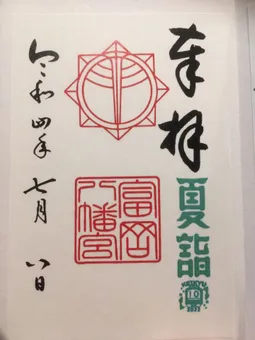 奉拝
夏詣
富岡
八幡宮
令和四年七月八日